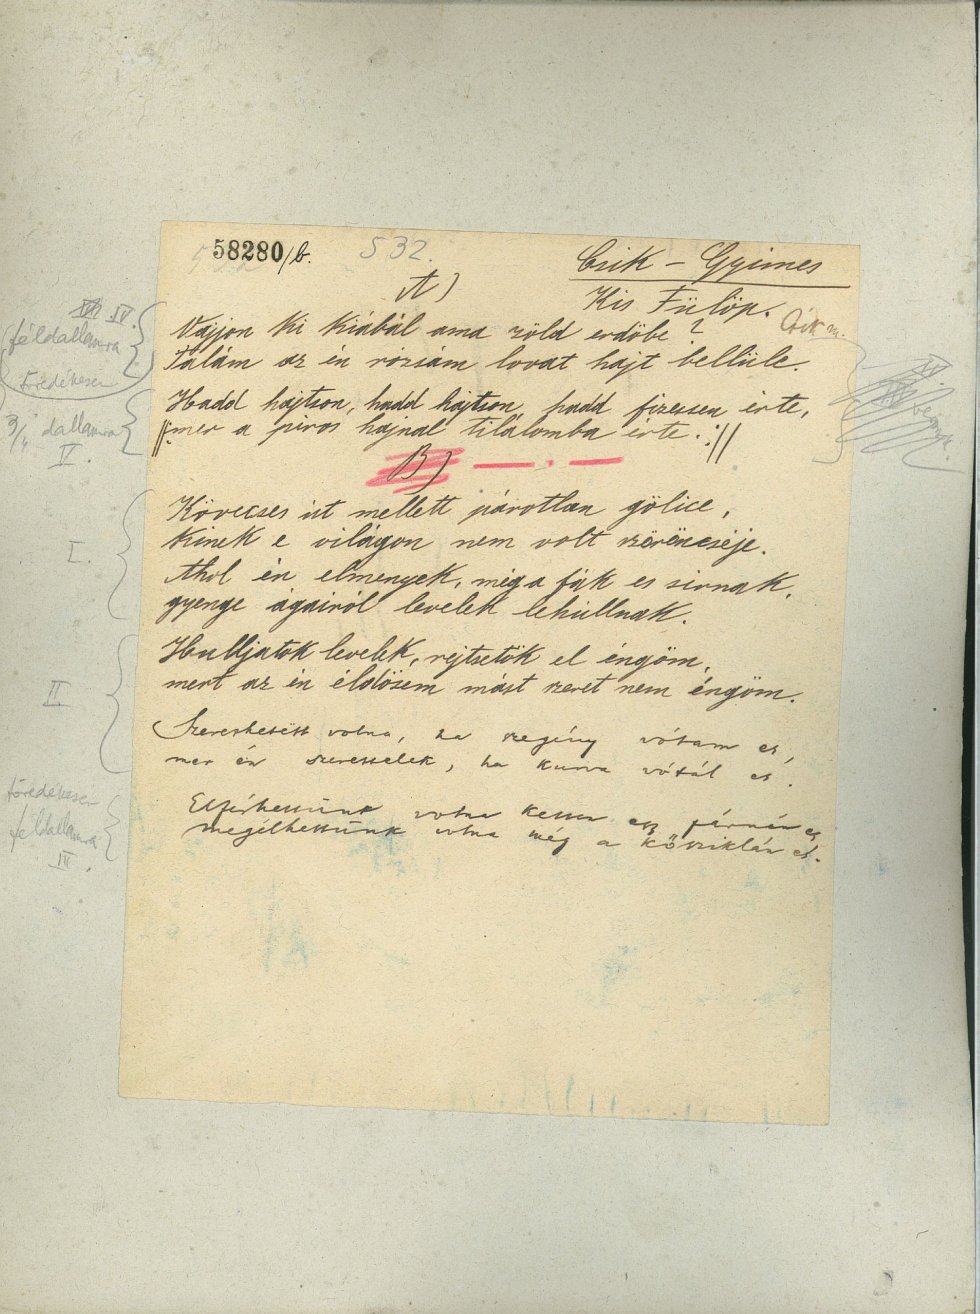 58280/b.
532.
Csik – Gyimes
Kis Fülöp.
Csík m.
A)
Vajjon ki kiábál ama zöld erdőbe?
Talám az én rózsám lovat hajt bellüle.
Hadd hajtson, hadd hajtson, hadd fizessen érte,
||: mer a piros hajnal tilalomba érte. :||
B)
Kövecses ut mellett párotlan gölice,
kinek e világon nem volt szöröncséje.
Ahol én elmenyek, még a fák es sirnak,
gyenge ágairól levelek lehullnak.
Hulljatok levelek, rejtsetök el éngöm,
mert az én éldösem mást szeret nem éngöm.
Szerethetött volna, ha szegény vótam es,
mer én szeresselek, ha kurva vótál es.
Elférhettünk volna ketten egy párnán es
megélhettünk volna még a kősziklán es.
IV.
féldallamra
töredékesen
3/4 dallamra
V.
I.
II.
töredékesen
féldallamra
III.
IV.